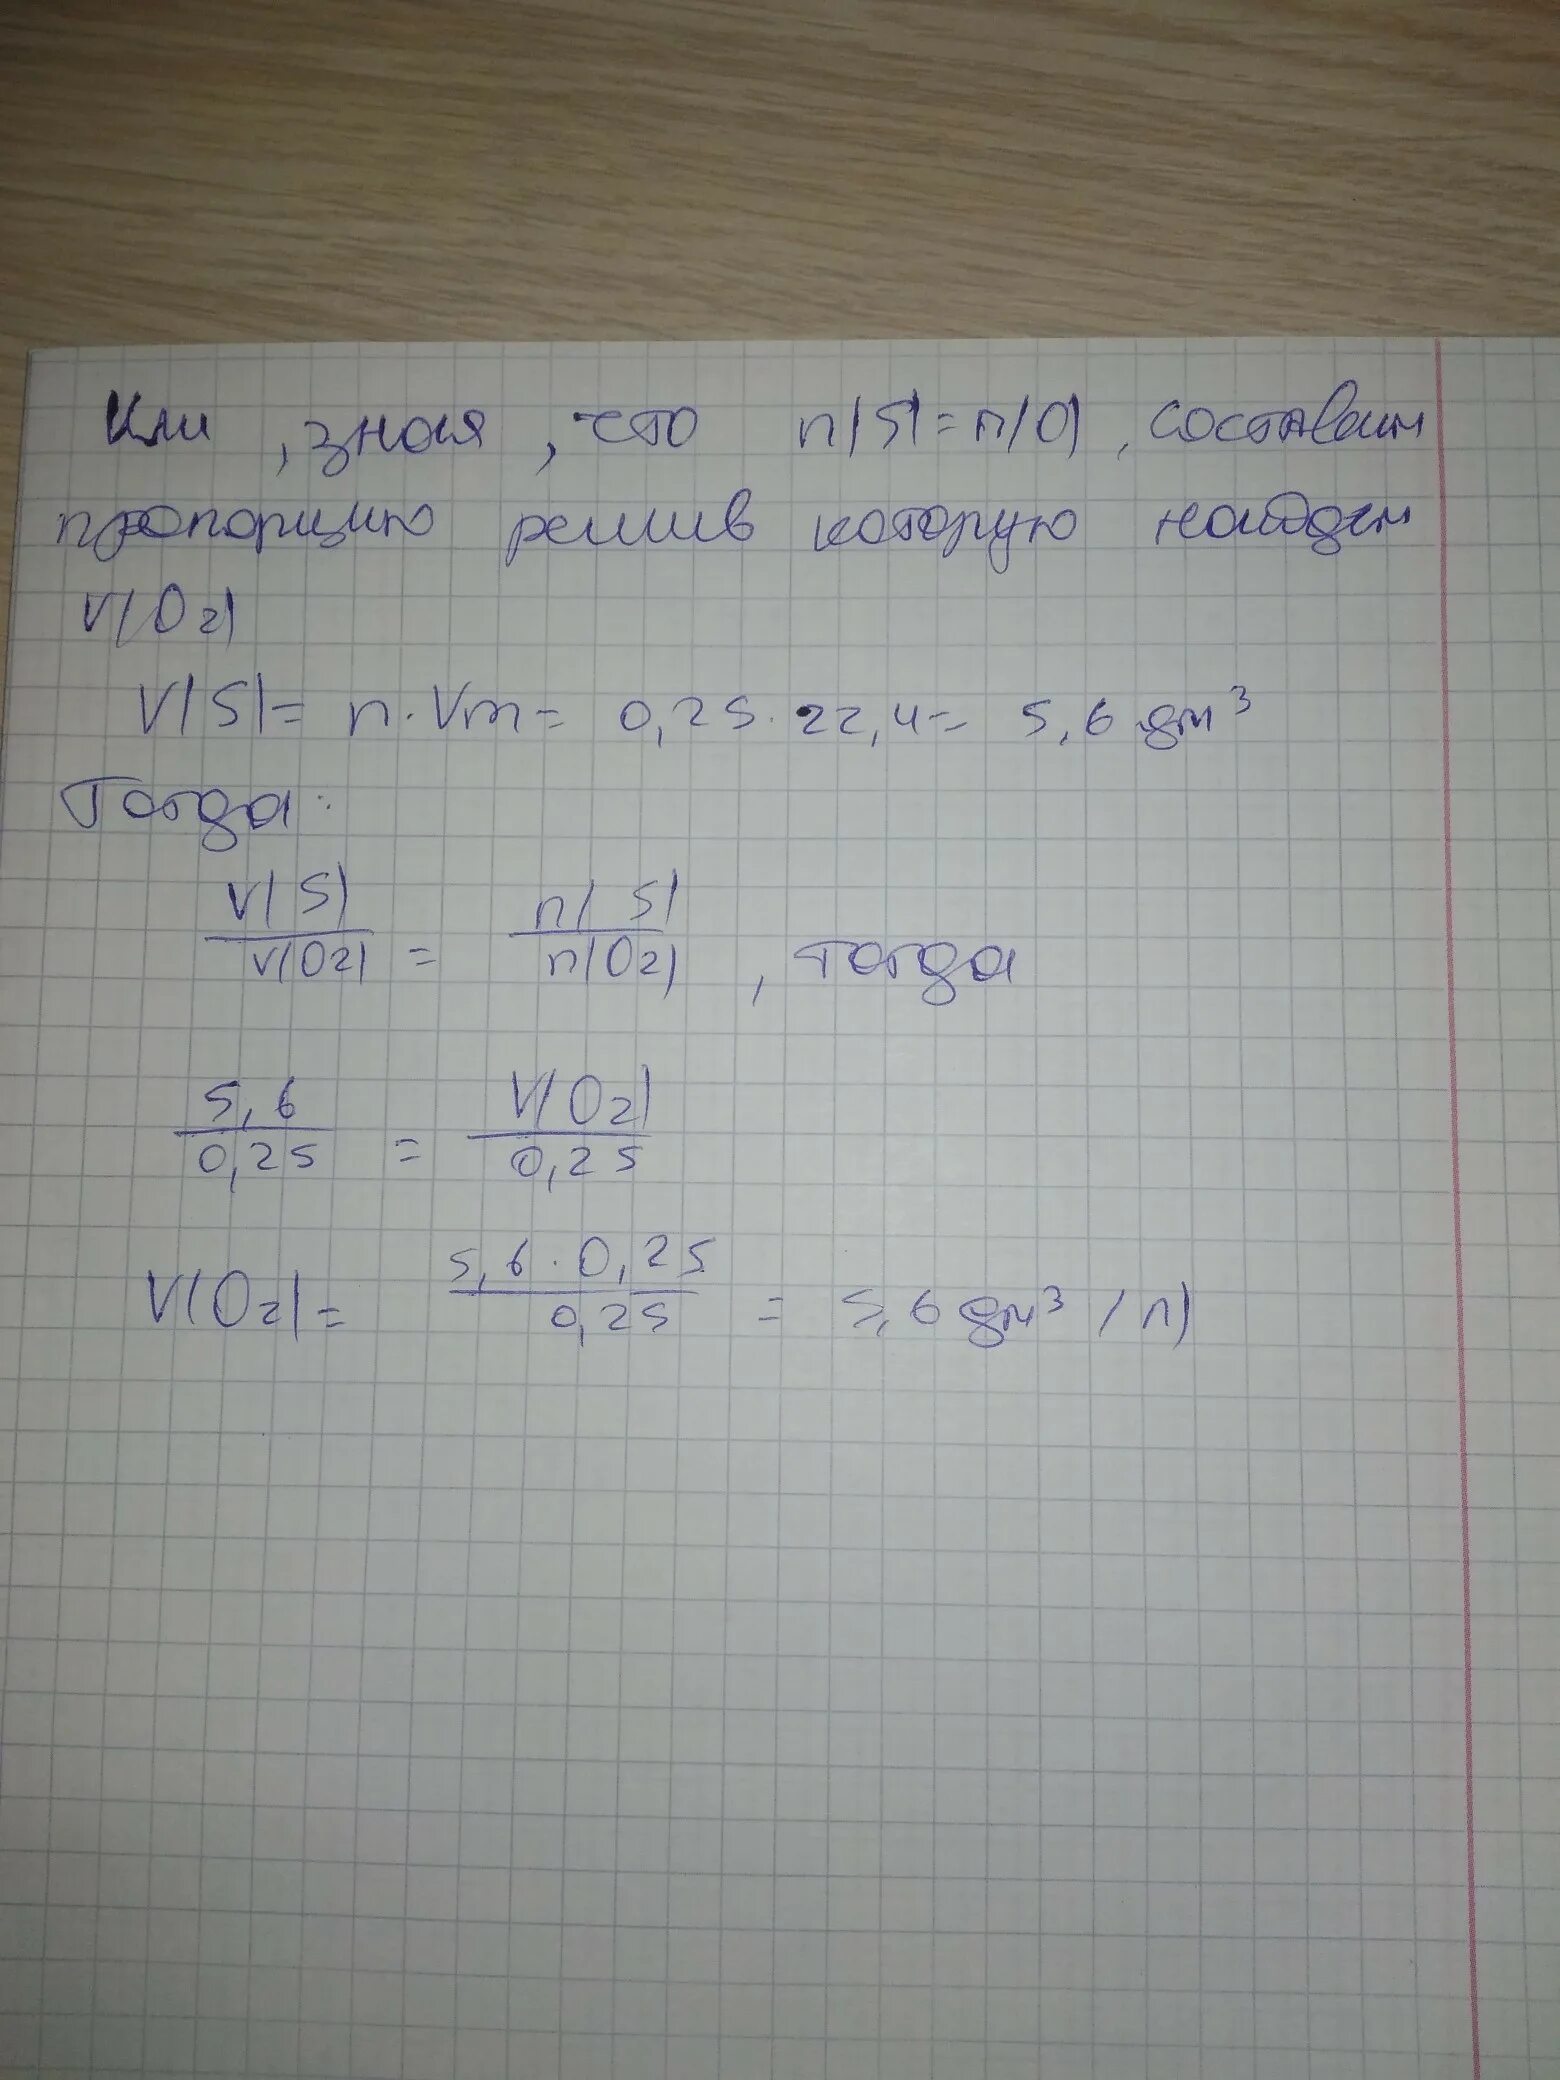 Или, зная, что n(S)=n(O), составим
пропорцию решив которую найдем
V(O2)
V(S)= n·Vm= 0,25·22,4= 5,6 дм³
Тогда:
V(S)/V(O2) = n(S)/n(O2), тогда
5,6/0,25 = V(O2)/0,25
V(O2)= 5,6·0,25/0,25 = 5,6 дм³ (л)